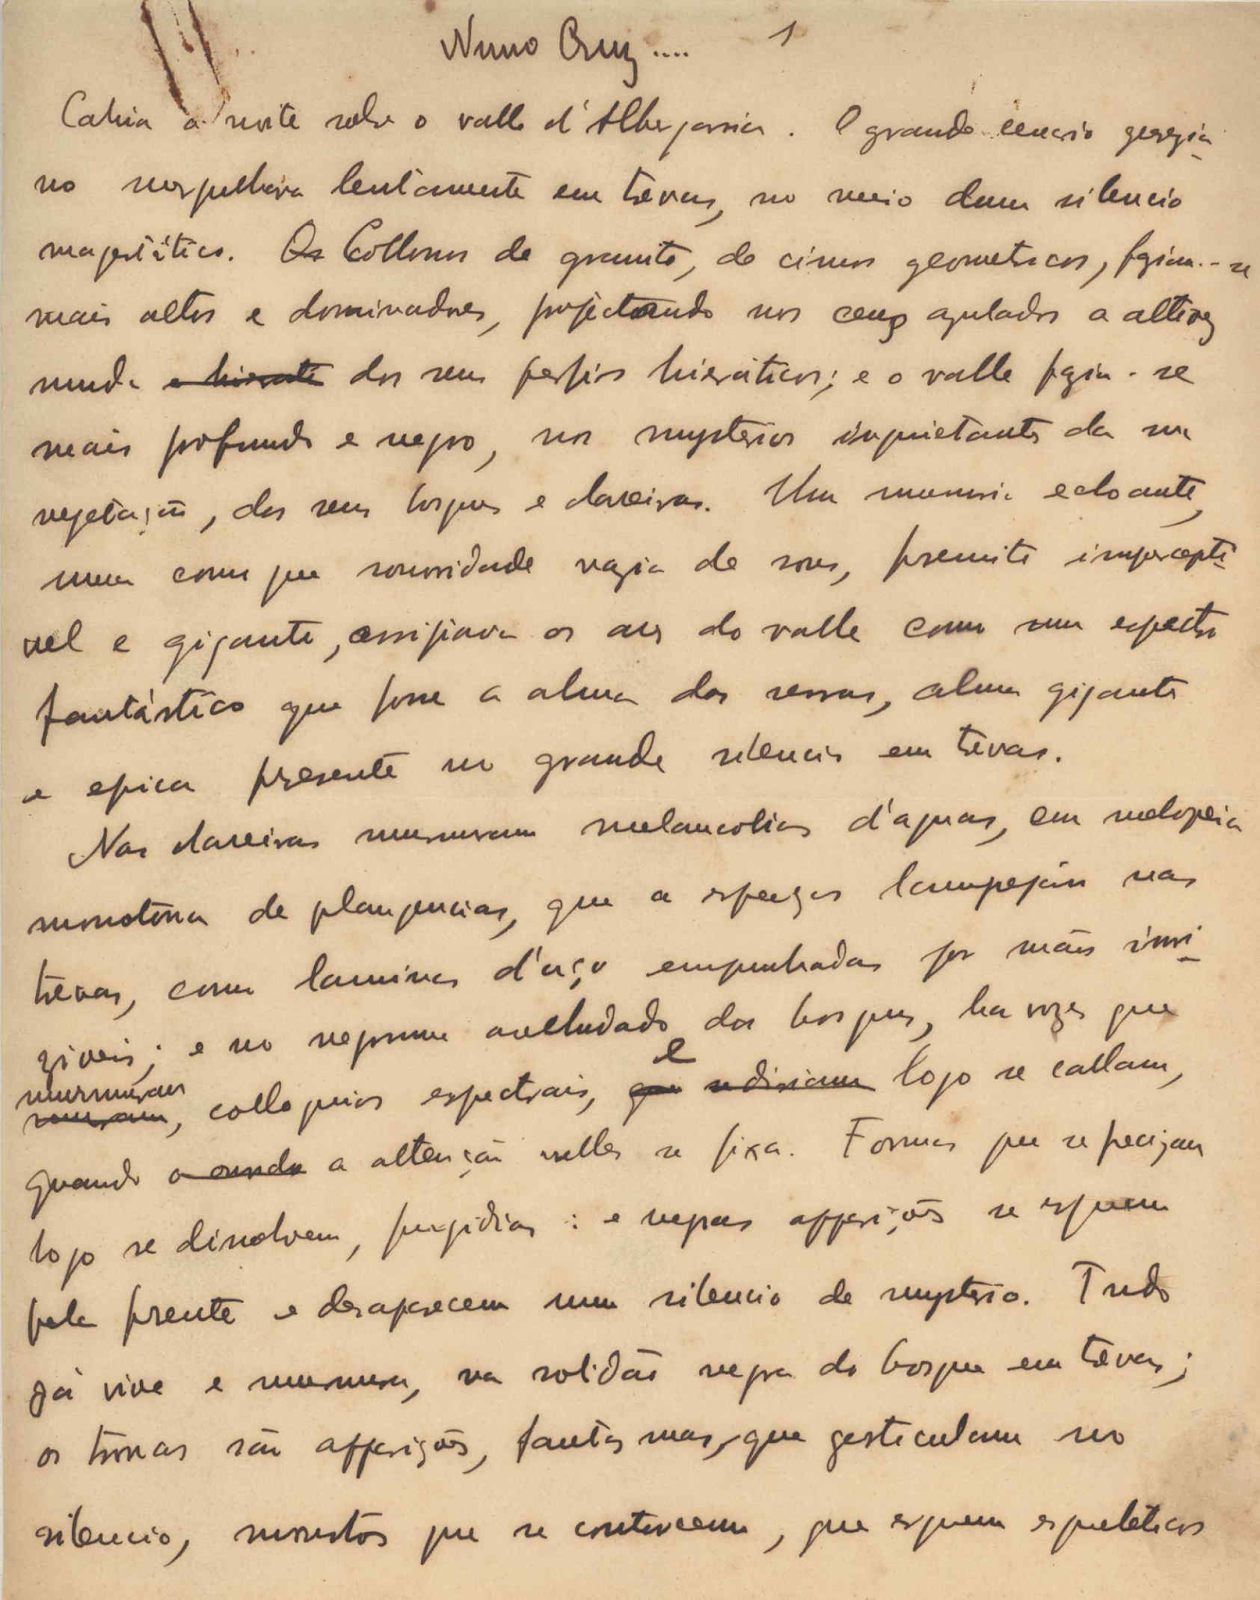 Nuno Cruz.... 1
Cahia a noite sobre o valle d'Albergaria. O grande scenario gerezia-
no mergulhava lentamente em trevas, no meio dum silencio
magestático. Os Collosos de granito, de cimos geometricos, faziam-se
mais altos e dominadores, projectando nos ceus azulados a altivez
muda e hierati dos seus perfis hieráticos; e o valle fazia-se
mais profundo e negro, nos mysterios inquietantes da sua
vegetação, dos seus bosques e clareiras. Um murmurio echoante,
uma como que sonoridade vazia de sons, fremito impercepti-
vel e gigante, arripiava os ares do valle como um espectro
fantástico que fosse a alma das serras, alma gigante
e epica presente no grande silencio em trevas.
Nas clareiras murmuram melancolias d'aguas, em melopeia
monotona de plangencias, que a espaços lampejam nas
trevas, como laminas d'aço empunhadas por mãos invi-
ziveis; e no negrume avelludado dos bosques, ha vozes que
murmuram, colloquios espectrais, e logo se callam,
quando a attenção nelles se fixa. Formas que se precizam
logo se dissolvem, fugidias: e negras apparições se erguem
pela frente e desaparecem num silencio de mysterio. Tudo
já vive e murmura, na solidão negra do bosque em trevas;
os troncos são apparições, fantasmas, que gesticulam no
silencio, monstros que se contorcem, que erguem esqueleticos